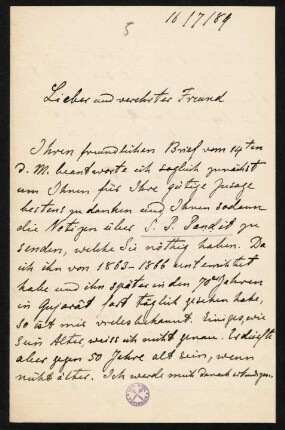 5
16/7/89
Lieber und verehrter Freund
Ihren freundlichen Brief vom 14ten
d. M. beantworte ich sogleich zunächst
um Ihnen für Ihre gütige Zusage
bestens zu danken und Ihnen sodann
die Notizen über S. P. Pandit zu
senden, welche Sie nöthig haben. Da
ich ihn von 1863-1866 unterrichtet
habe und ihn später in den 70er Jahren
in Gujarât fast täglich gesehen habe,
so ist mir vieles bekannt. Einiges wie
sein Alter, weiss ich nicht genau. Er dürfte
aber gegen 50 Jahre alt sein, wenn
nicht älter. Ich werde mich danach erkundigen.